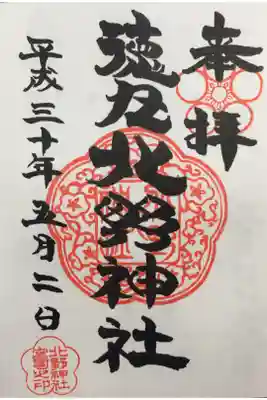 奉拝
徳丸北野神社
平成三十年五月二日
北野神社